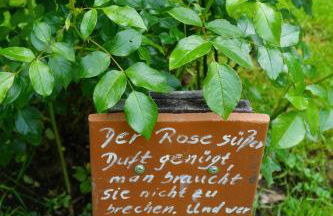 Der Rose süßer
Duft genügt,
man braucht
sie nicht zu
brechen. Und wer